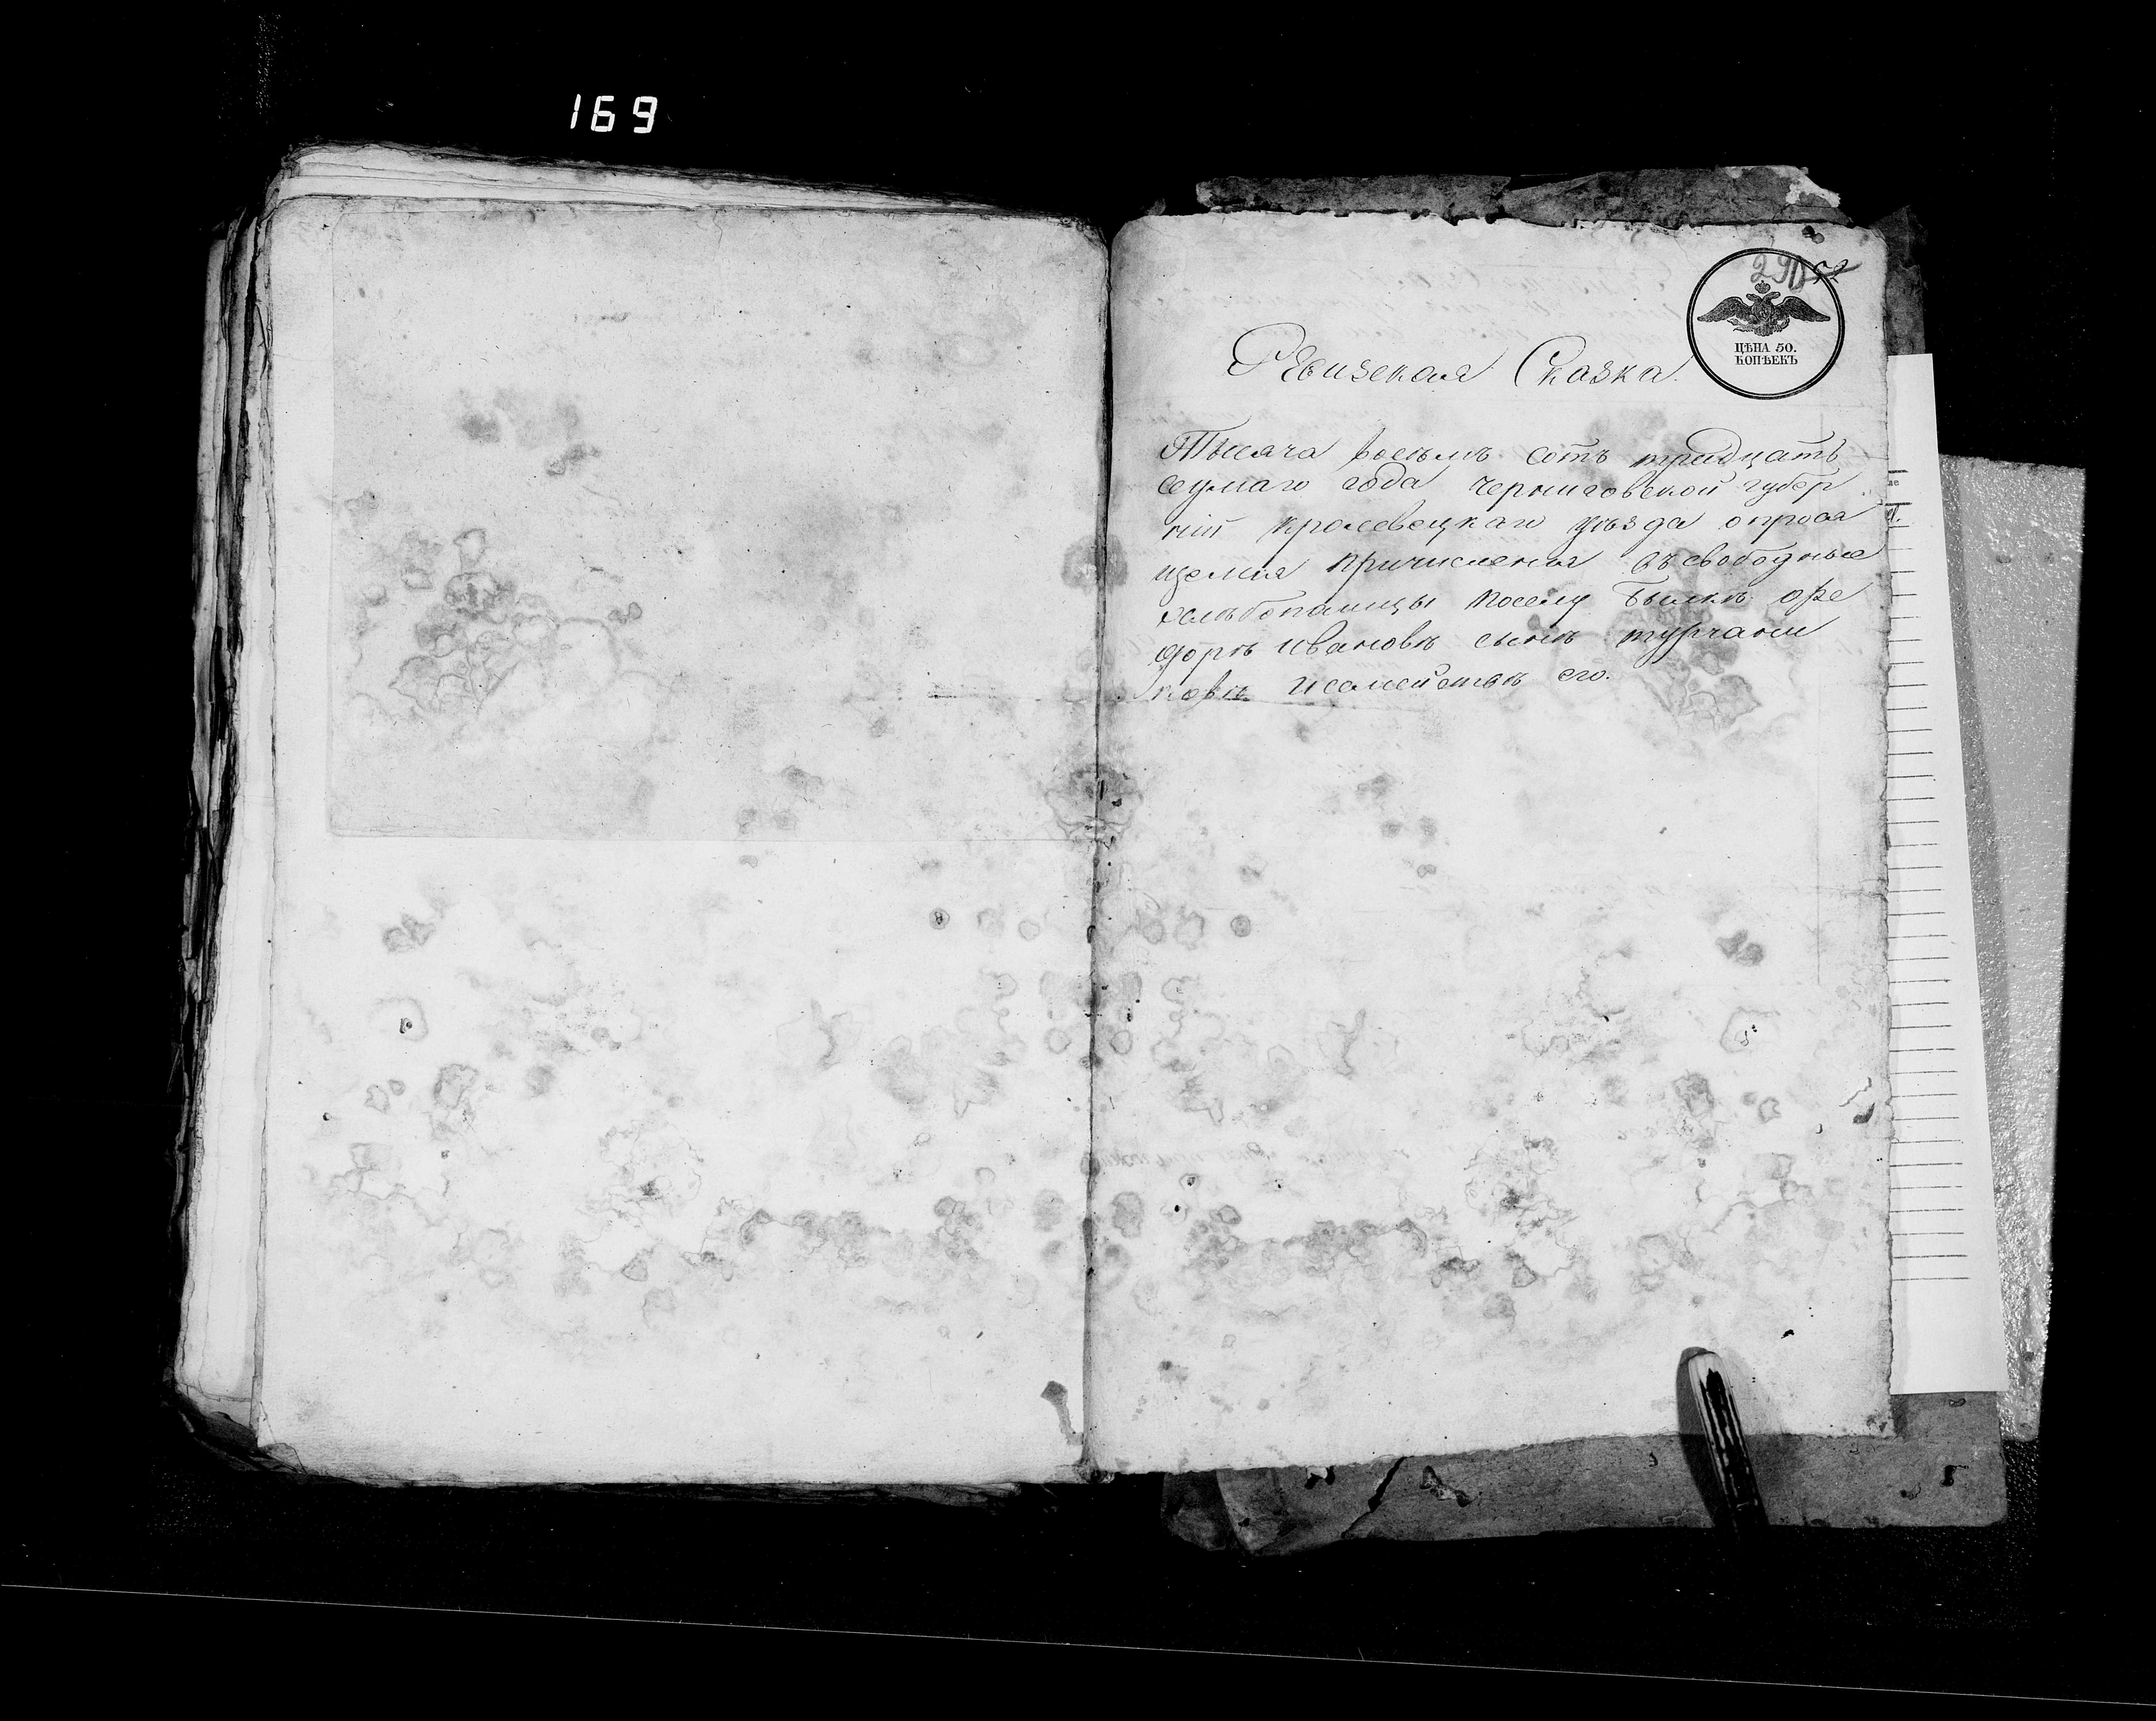 169
290 52
ЦѢНА 50.
КОПѢЕКЪ
Ревизская Сказка.
Тысяча восемъ сотъ тридцатъ
седмаго года черниговской губер
ніи кролевецкаго уѣзда опрося
щемся причисленія въ свободные
хлѣбопашцы посему Быикѣ
дорѣ ивановѣ сынѣ турчани
новѣ и семействѣ его.